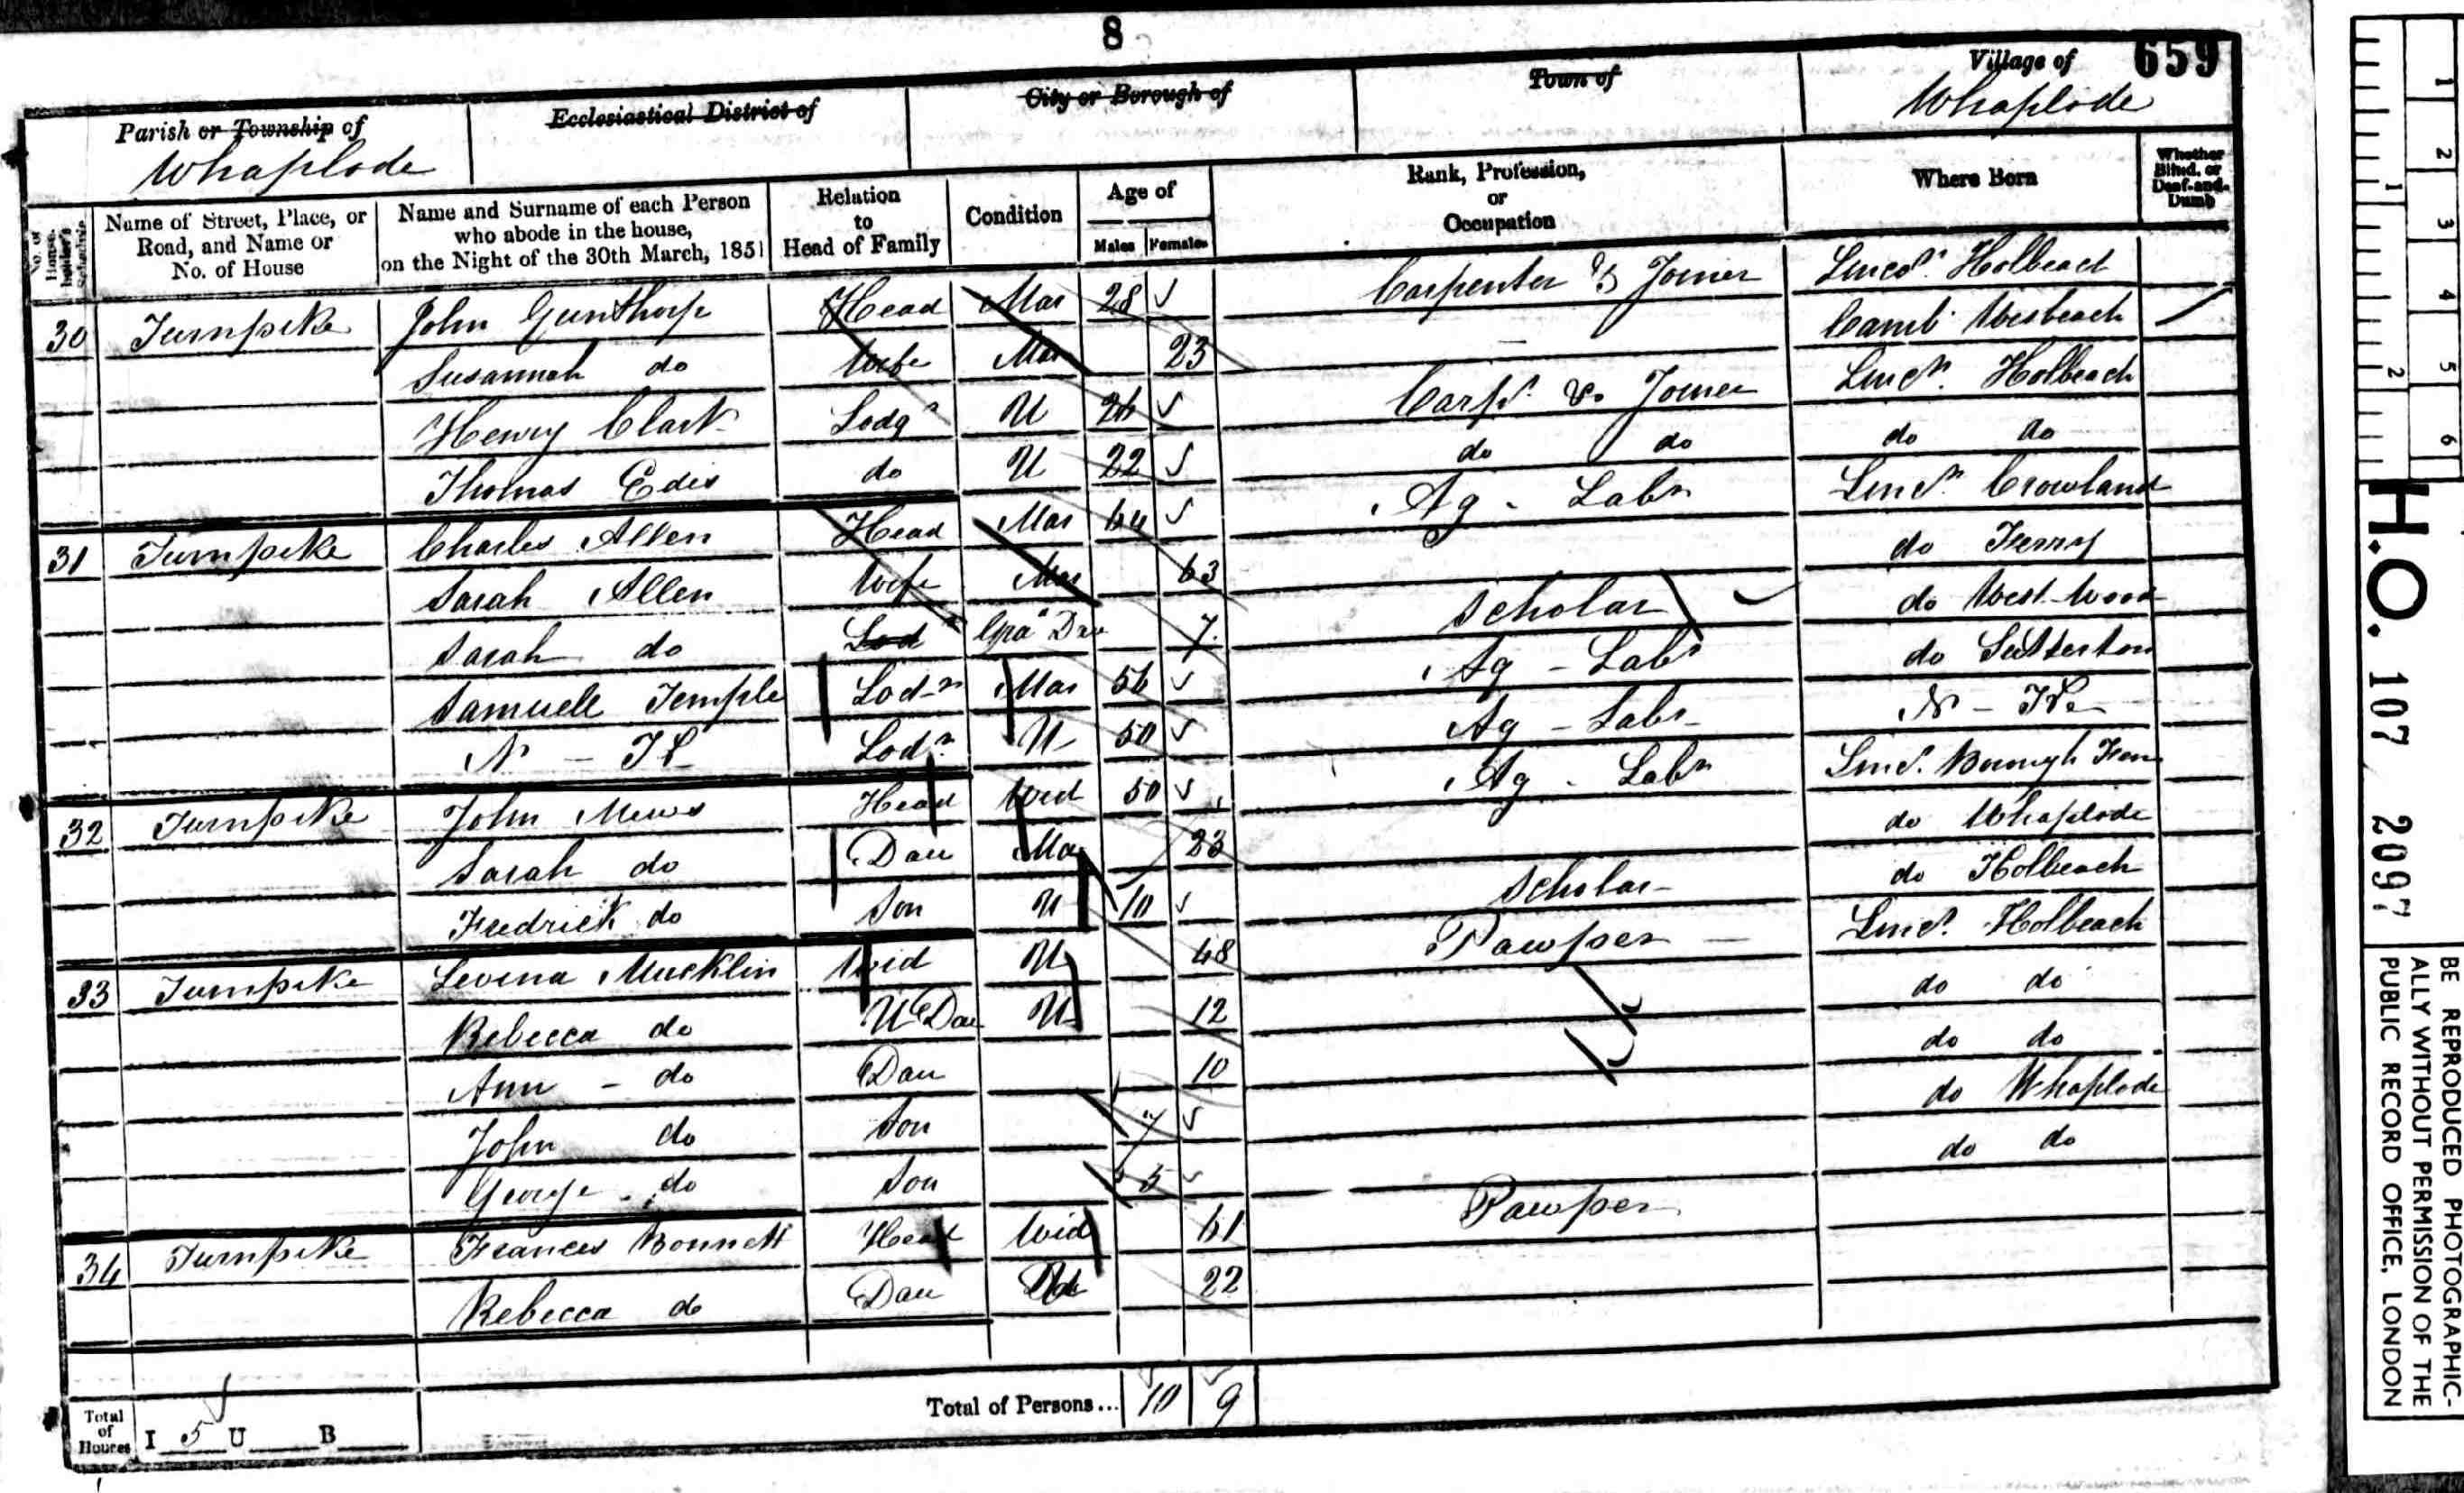 8
659
Parish or Township of Whaplode
Ecclesiastical District of
City or Borough of
Town of
Village of Whaplode
No. of House-holder's Schedule
Name of Street, Place, or Road, and Name or No. of House
Name and Surname of each Person who abode in the house, on the Night of the 30th March, 1851
Relation to Head of Family
Condition
Age of
Males Females
Rank, Profession, or Occupation
Where Born
Whether Blind, or Deaf-and-Dumb
30 Turnpike John Gunthorp Head Mar 28 Carpenter & Joiner Lincol: Holbeach
Susannah do Wife Mar 23 Camb. Wesbeach
Henry Clark Lodgr U 26 Carpr. & Joiner Lincn. Holbeach
Thomas Edis do U 22 do do do do
31 Turnpike Charles Allen Head Mar 64 Ag - Labr Lincn. Crowland
Sarah Allen Wife Mar 63 do
Sarah do Lod Gra Dau 7 Scholar do West-Wood
Samuell Temple Lodr Mar 56 Ag - Labr do Sutterton
N - K Lodr U 50 Ag - Labr N - K
32 Turnpike John Mews Head Wid 50 Ag - Labr Linc. Borough Fen
Sarah do Dau Mar 23 do Whaplode
Fredrick do Son U 10 Scholar do Holbeach
33 Turnpike Levina Mucklin Wid U 48 Pawper - Linc. Holbeach
Rebecca do U Dau U 12 do do
Ann - do Dau 10 do do
John do Son 7 do Whaplode
George do Son 5 do do
34 Turnpike Frances Bonnett Head Wid 61 Pawper
Rebecca do Dau 22
Total of Houses I 5 U B
Total of Persons... 10 9
1 2 3 4 5 6
1 2
H.O. 107 2097
BE REPRODUCED PHOTOGRAPHIC-
ALLY WITHOUT PERMISSION OF THE
PUBLIC RECORD OFFICE, LONDON